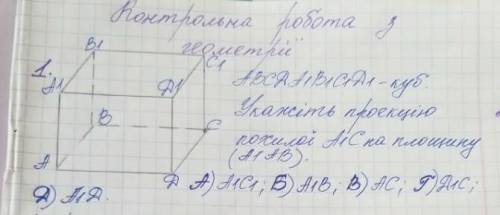 Контрольна робота з
геометрії
1.
B1
C1
A1
D1
B
C
A
D
ABCDA1B1C1D1 - куб.
Укажіть проекцію
похилої A1C на площину
(A1AB).
А) A1C1; Б) A1B; В) AC; Г) D1C;
Д) A1D.